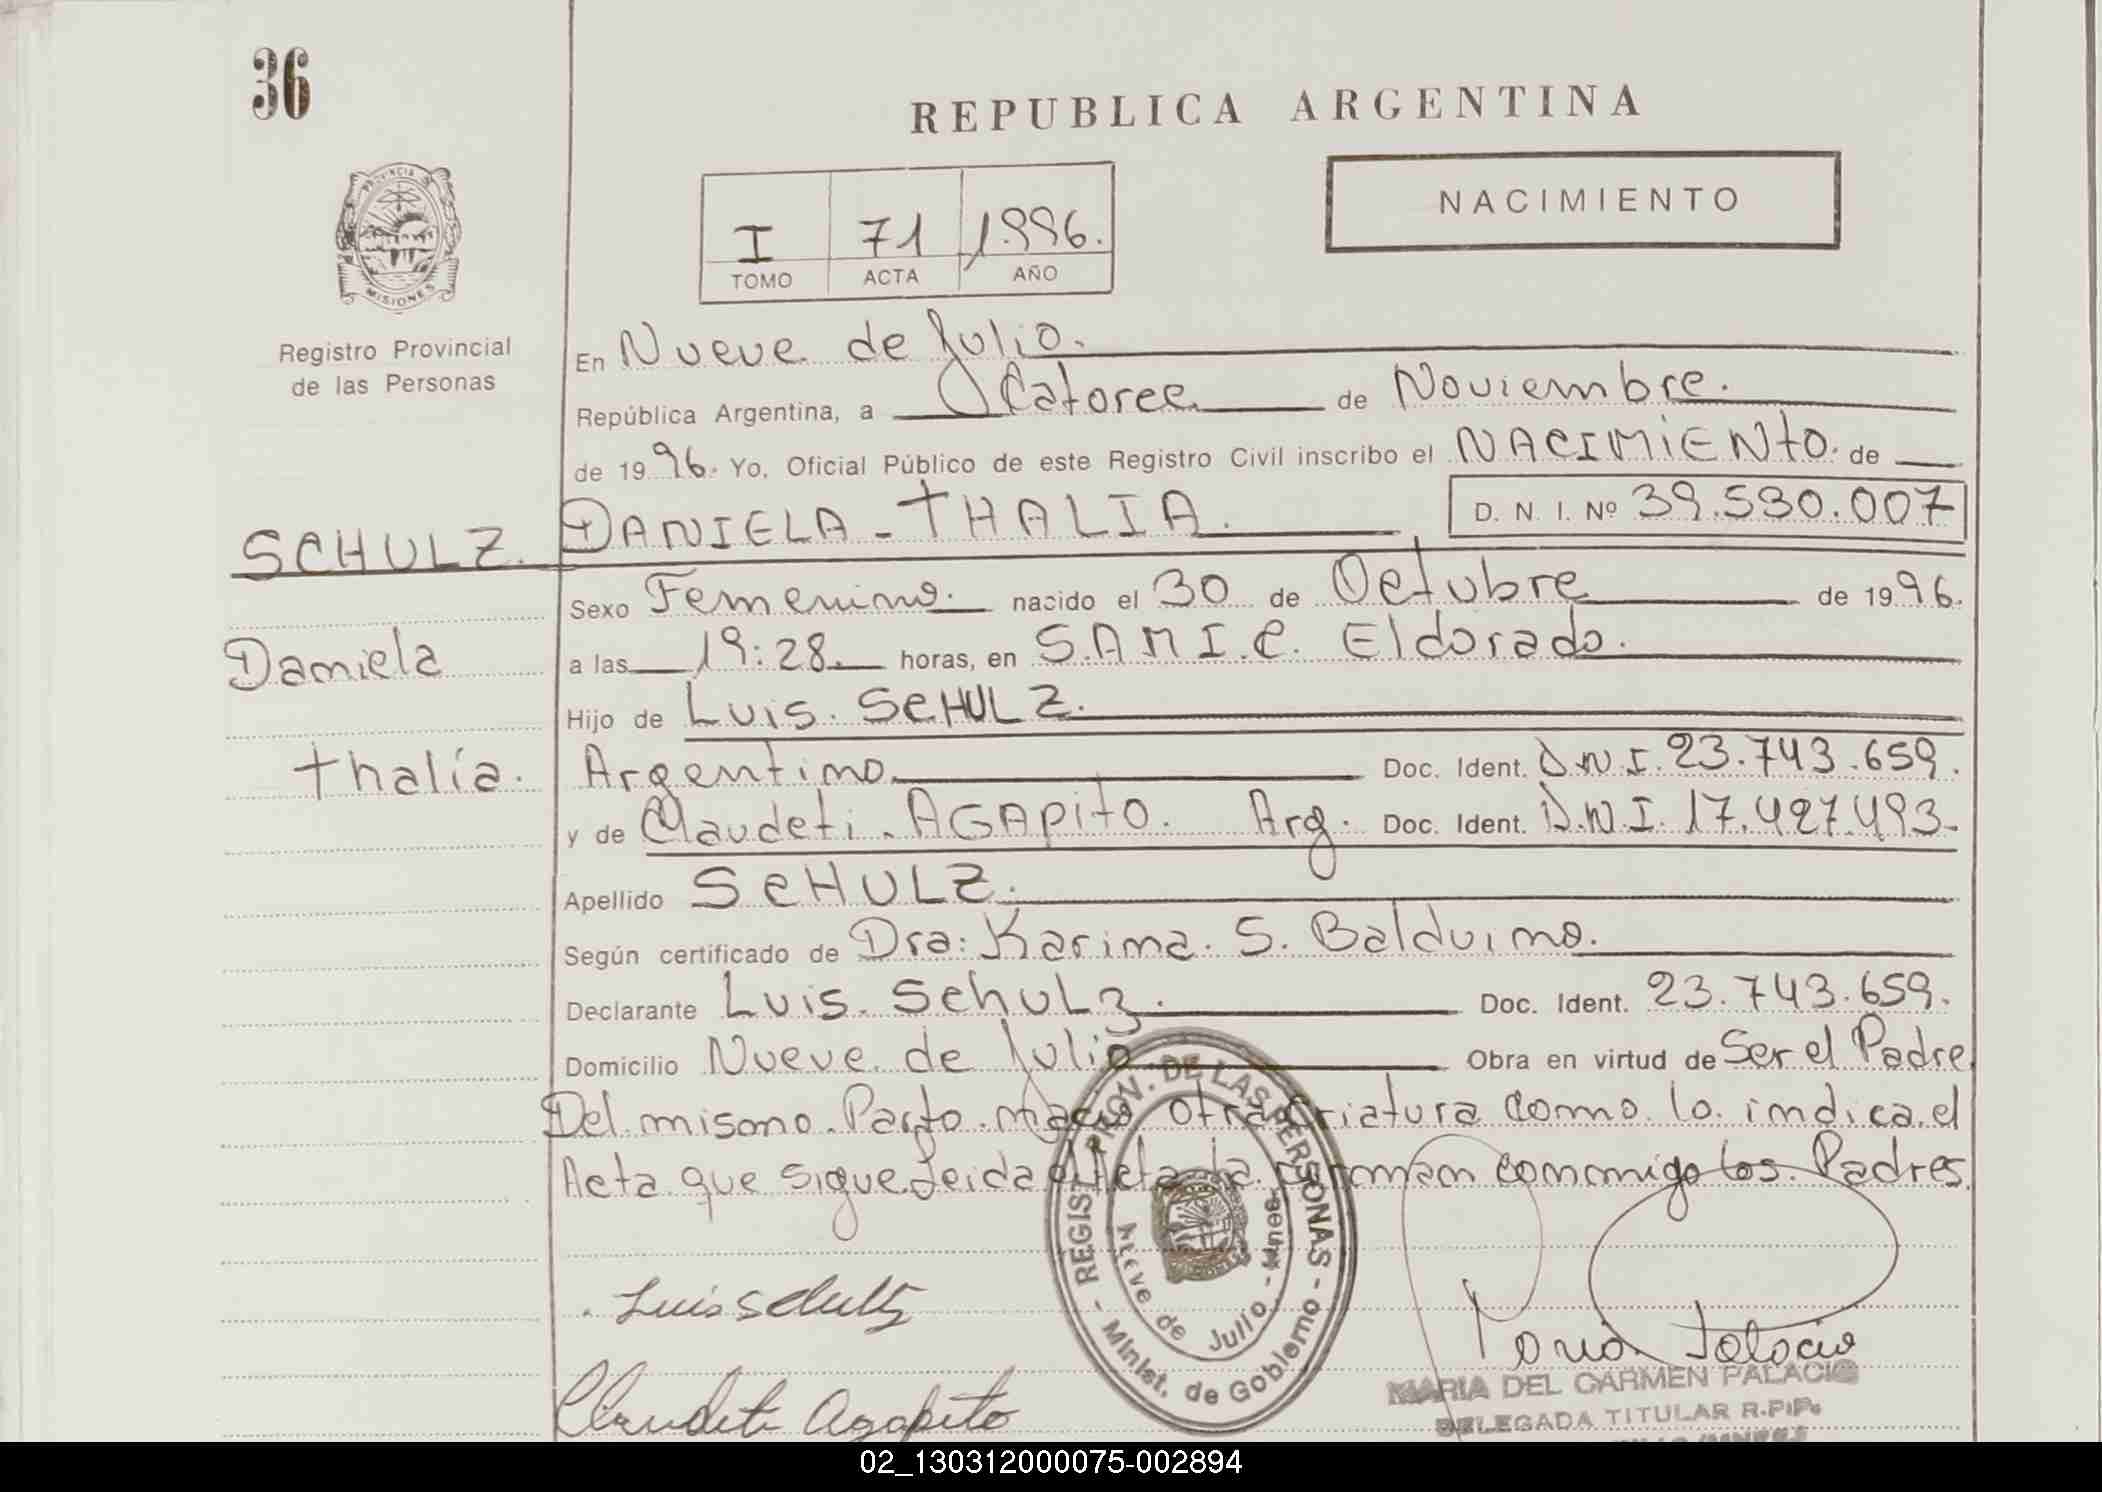 36
REPUBLICA ARGENTINA
NACIMIENTO
I 71 1.996.
TOMO ACTA AÑO
PROVINCIA DE
MISIONES
Registro Provincial
de las Personas
En Nueve de Julio.
República Argentina, a Catorce de Noviembre.
de 1996. Yo, Oficial Público de este Registro Civil inscribo el NACIMIENTO. de
SCHULZ. DANIELA - THALIA. D. N. I. Nº 39.530.007
Sexo Femenino. nacido el 30 de Octubre de 1996.
Daniela
a las 19:28. horas, en S.A.M.I.C. Eldorado.
Hijo de Luis. SCHULZ.
thalía.
Argentino Doc. Ident. D.N.I. 23.743.659.
y de Claudeti. AGAPito. Arg. Doc. Ident. D.N.I. 17.427.493-
Apellido SCHULZ.
Según certificado de Dra: Karina. S. Balduino.
Declarante Luis. Schulz. Doc. Ident. 23.743.659.
Domicilio Nueve de Julio Obra en virtud de Ser el Padre
Del mismo. Parto. nacio otra criatura como lo. indica. el
Acta que sigue. Leida el Acta la firman conmigo los. Padres.
REGIST. PROV. DE LAS PERSONAS - Minist. de Gobierno -
Nueve de Julio - Mnes.
Luis Schultz
Claudeti Agapito
Maria Palacio
MARIA DEL CARMEN PALACIO
DELEGADA TITULAR R.P.P.
02_130312000075-002894